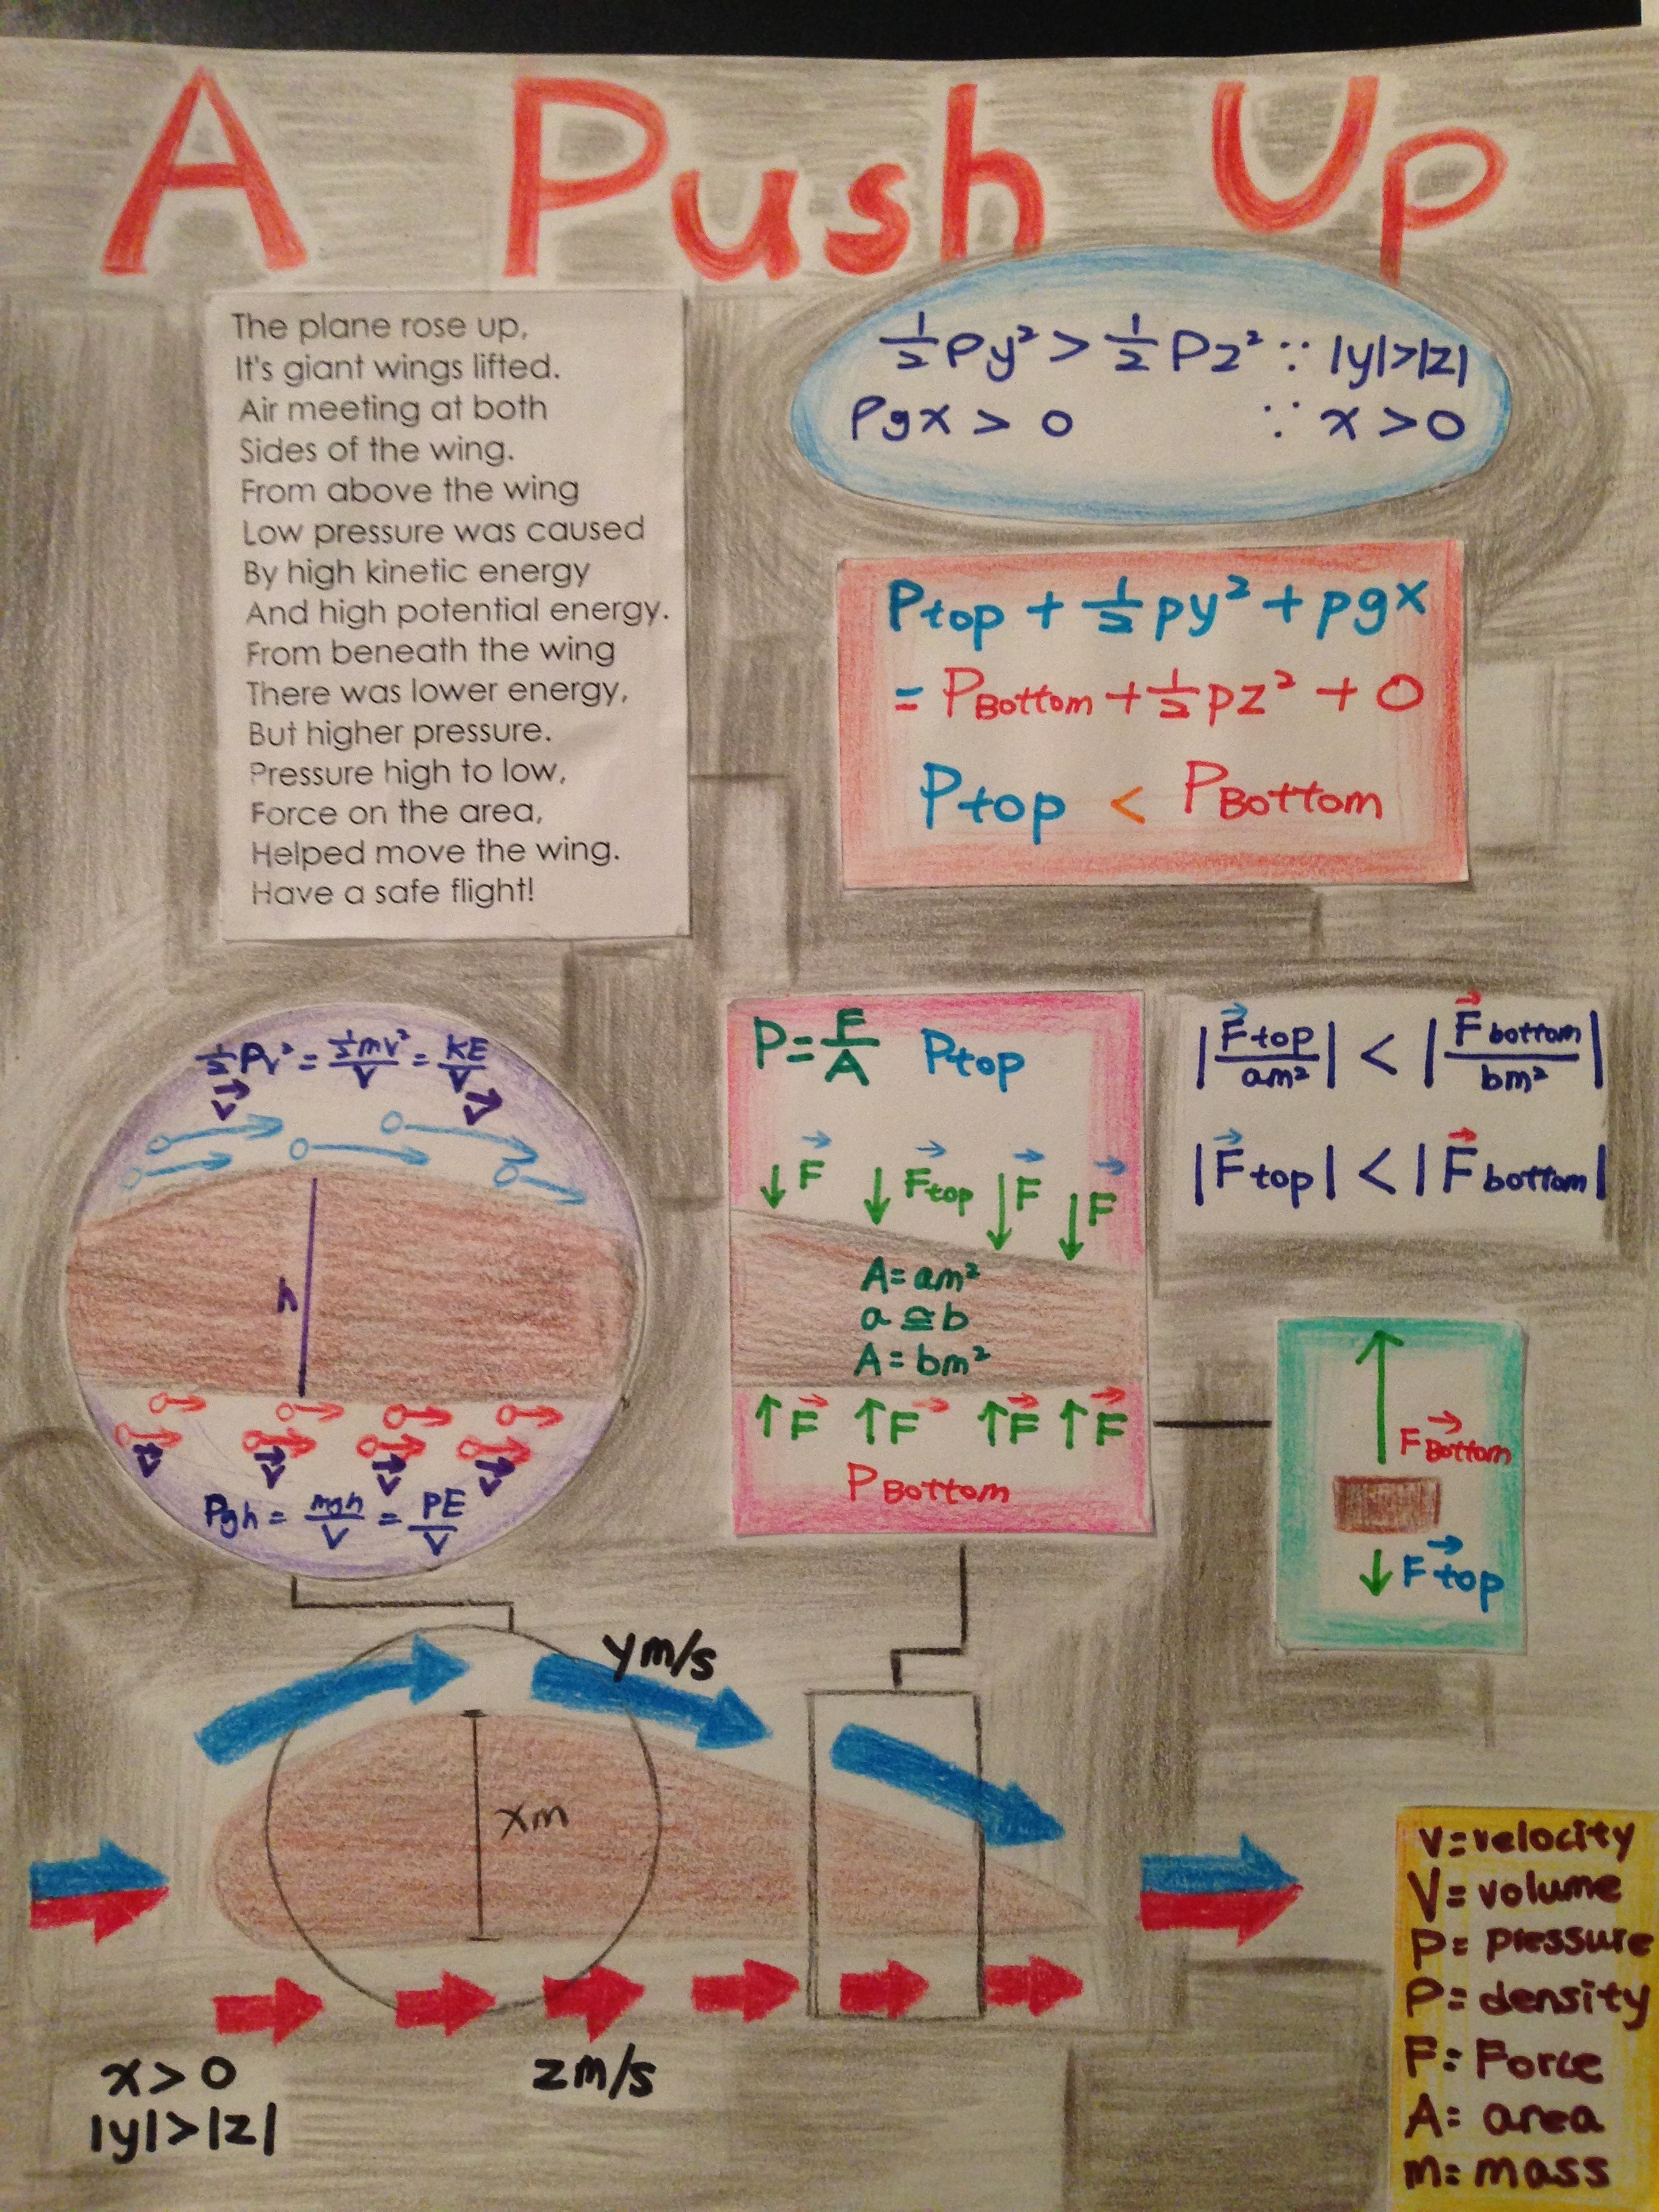 A Push Up
The plane rose up,
It's giant wings lifted.
Air meeting at both
Sides of the wing.
From above the wing
Low pressure was caused
By high kinetic energy
And high potential energy.
From beneath the wing
There was lower energy,
But higher pressure.
Pressure high to low,
Force on the area,
Helped move the wing.
Have a safe flight!
½ρy² > ½ρz² ∵ |y|>|z|
ρgx > 0 ∵ x > 0
Ptop + ½ρy² + ρgx
= PBottom + ½ρz² + 0
Ptop < PBottom
½ρv² = ½mv²/V = KE/V
v⃗ v⃗
h
v⃗ v⃗ v⃗ v⃗
ρgh = mgh/V = PE/V
P = F/A Ptop
F⃗ F⃗top F⃗ F⃗
A = am²
a ≅ b
A = bm²
F⃗ F⃗ F⃗ F⃗
PBottom
|F⃗top/am²| < |F⃗bottom/bm²|
|F⃗top| < |F⃗bottom|
F⃗Bottom
F⃗top
ym/s
xm
zm/s
x > 0
|y|>|z|
v = velocity
V = volume
P = pressure
ρ = density
F = Force
A = area
m = mass